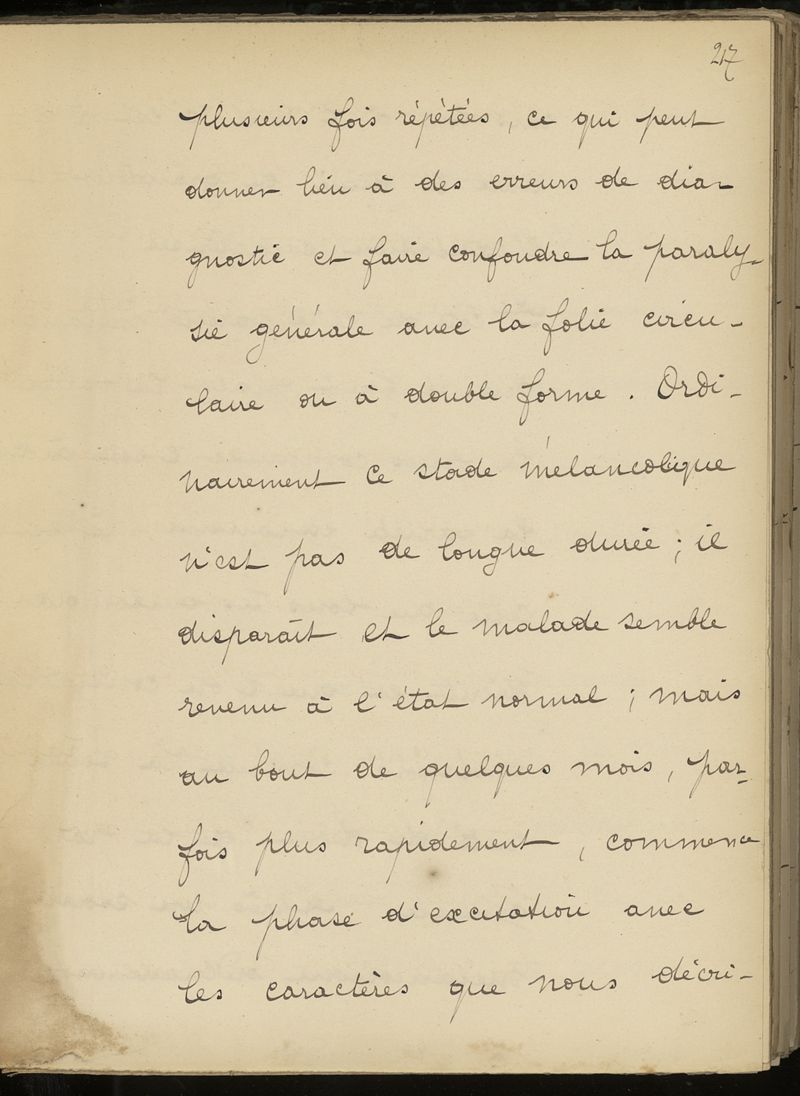 217
plusieurs fois répétées, ce qui peut
donner lieu à des erreurs de dia-
gnostic et faire confondre la paraly-
sie générale avec la folie circu-
laire ou à double forme. Ordi-
nairement ce stade mélancolique
n'est pas de longue durée ; il
disparaît et le malade semble
revenu à l'état normal ; mais
au bout de quelques mois, par-
fois plus rapidement, commence
la phase d'excitation avec
les caractères que nous décri-